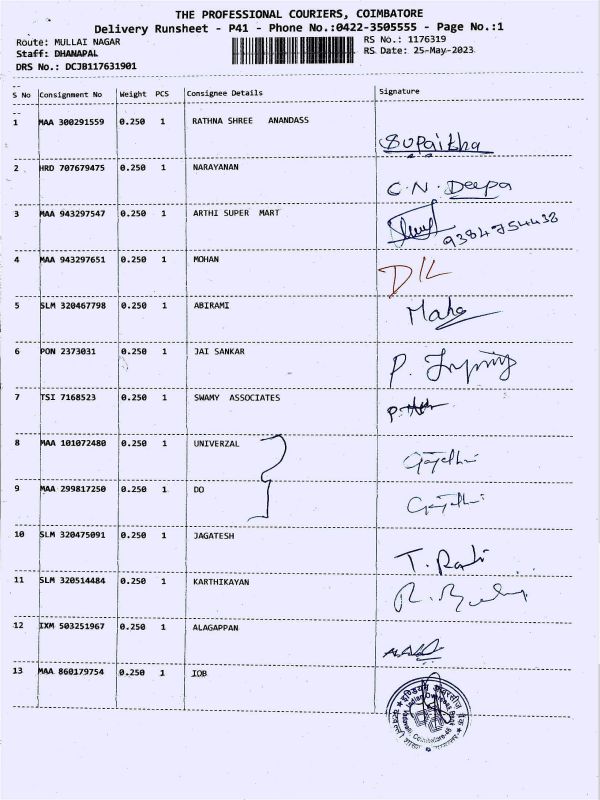 THE PROFESSIONAL COURIERS, COIMBATORE
Delivery Runsheet - P41 - Phone No.:0422-3505555 - Page No.:1
Route: MULLAI NAGAR RS No.: 1176319
Staff: DHANAPAL RS Date: 25-May-2023
DRS No.: DCJB117631901
S No Consignment No Weight PCS Consignee Details Signature
1 MAA 300291559 0.250 1 RATHNA SHREE ANANDASS
Supaitha
2 HRD 707679475 0.250 1 NARAYANAN
C.N. Deepa
3 MAA 943297547 0.250 1 ARTHI SUPER MART
9384754438
4 MAA 943297651 0.250 1 MOHAN
5 SLM 320467798 0.250 1 ABIRAMI
Maha
6 PON 2373031 0.250 1 JAI SANKAR
P.
7 TSI 7168523 0.250 1 SWAMY ASSOCIATES
8 MAA 101072480 0.250 1 UNIVERZAL
9 MAA 299817250 0.250 1 DO
10 SLM 320475091 0.250 1 JAGATESH
T.
11 SLM 320514484 0.250 1 KARTHIKAYAN
R.
12 IXM 503251967 0.250 1 ALAGAPPAN
13 MAA 860179754 0.250 1 IOB
Indian Overseas Bank
Coimbatore-